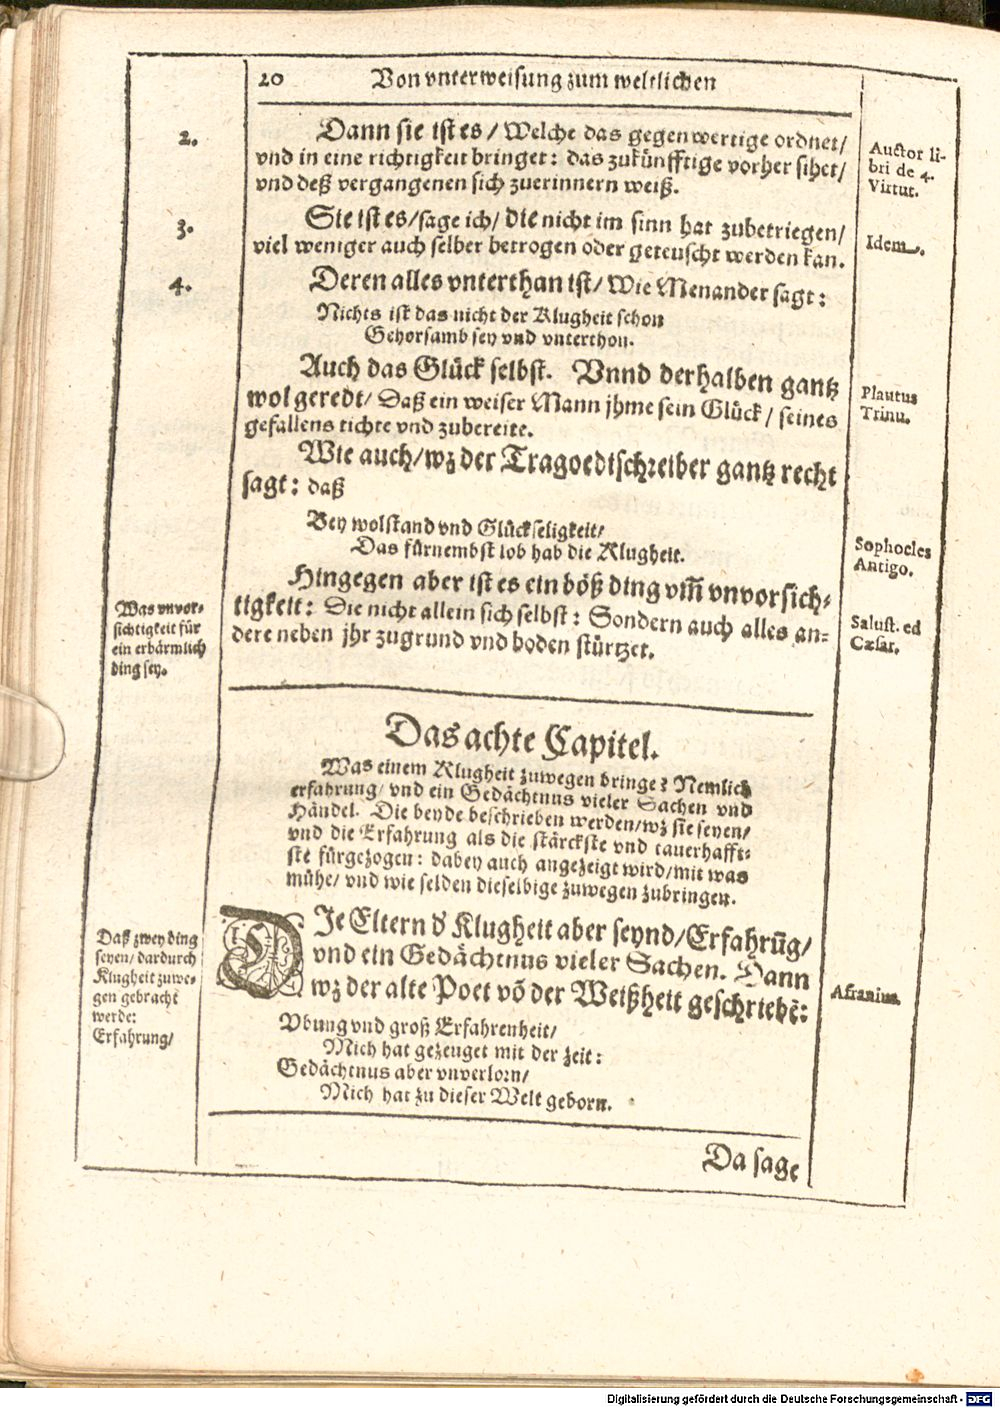 20 Von vnterweisung zum weltlichen
2. Dann sie ist es / Welche das gegenwertige ordnet/
vnd in eine richtigkeit bringet: das zukünfftige vorher sihet/
vnd deß vergangenen sich zuerinnern weiß.
Auctor li-
bri de 4.
Virtut.
3. Sie ist es/sage ich/ die nicht im sinn hat zubetriegen/
viel weniger auch selber betrogen oder geteuscht werden kan.
Idem.
4. Deren alles vnterthan ist/ Wie Menander sagt:
Nichts ist das nicht der Klugheit schon
Gehorsamb sey vnd vnterthon.
Auch das Glück selbst. Vnnd derhalben gantz
wol geredt/ Daß ein weiser Mann jhme sein Glück/ seines
gefallens tichte vnd zubereite.
Plautus
Trinu.
Wie auch/wz der Tragoedischreiber gantz recht
sagt: daß
Bey wolstand vnd Glückseligkeit/
Das fürnembst lob hab die Klugheit.
Sophocles
Antigo.
Hingegen aber ist es ein böß ding vm̃ vnvorsich-
tigkeit: Die nicht allein sich selbst: Sondern auch alles an-
dere neben jhr zugrund vnd boden stürtzet.
Was vnvor-
sichtigkeit für
ein erbärmlich
ding sey.
Salust. ed
Cæsar.
Das achte Capitel.
Was einem Klugheit zuwegen bringe? Nemlich
erfahrung/ vnd ein Gedächtnus vieler Sachen vnd
Händel. Die beyde beschrieben werden/wz sie seyen/
vnd die Erfahrung als die stärckste vnd tauerhaffte-
ste fürgezogen: dabey auch angezeigt wird/mit was
mühe/ vnd wie selden dieselbige zuwegen zubringen.
DJe Eltern d' Klugheit aber seynd/Erfahrũg/
vnd ein Gedächtnus vieler Sachen. Dann
wz der alte Poet võ der Weißheit geschriebẽ:
Daß zwey ding
seyen/ dardurch
Klugheit zuwe-
gen gebracht
werde:
Erfahrung/
Afranius.
Vbung vnd groß Erfahrenheit/
Mich hat gezeuget mit der zeit:
Gedächtnus aber vnverlorn/
Mich hat zu dieser Welt geborn.
Da sage
Digitalisierung gefördert durch die Deutsche Forschungsgemeinschaft - DFG